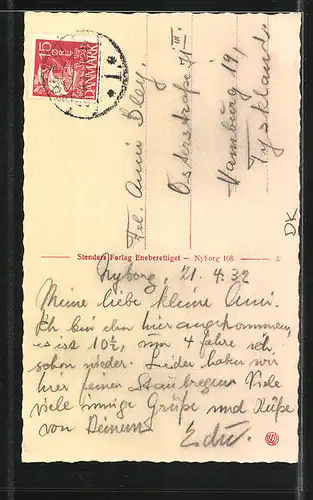 15
ØRE
DANMARK
* 1 *
Frl. Anni Bley.
Osterstraße 71 III.
Hamburg 19,
Tyskland
DK
Stenders Forlag Eneberettiget — Nyborg 108.
Nyborg, 21.4.32
Meine liebe kleine Anni.
Ich bin eben hier angekommen,
es ist 10½, vor 4 fahre ich
schon wieder. Leider haben wir
hier feinen Staubregen. Viele
viele innige Grüße und Küße
von Deinem Edu.